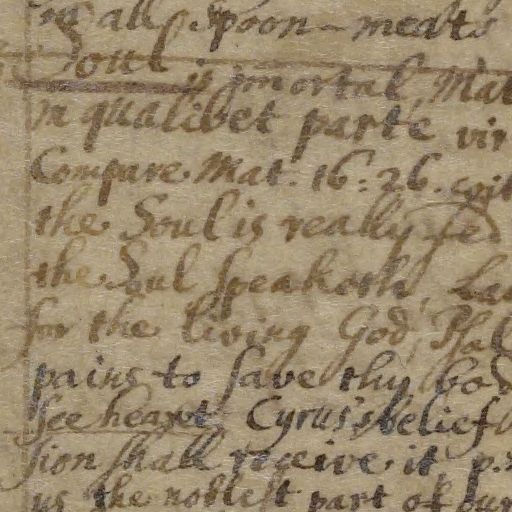 all Spoon-meats
Soul is jmortal, Mat
in qualibet parte, vir
Compare Mat. 16: 26.
the Soul is really
the Soul speaketh,
for the living God, Psal
pains to save thy bod
See heart Cyrus's belief
sion shall receive it p.
us the noblest part of our